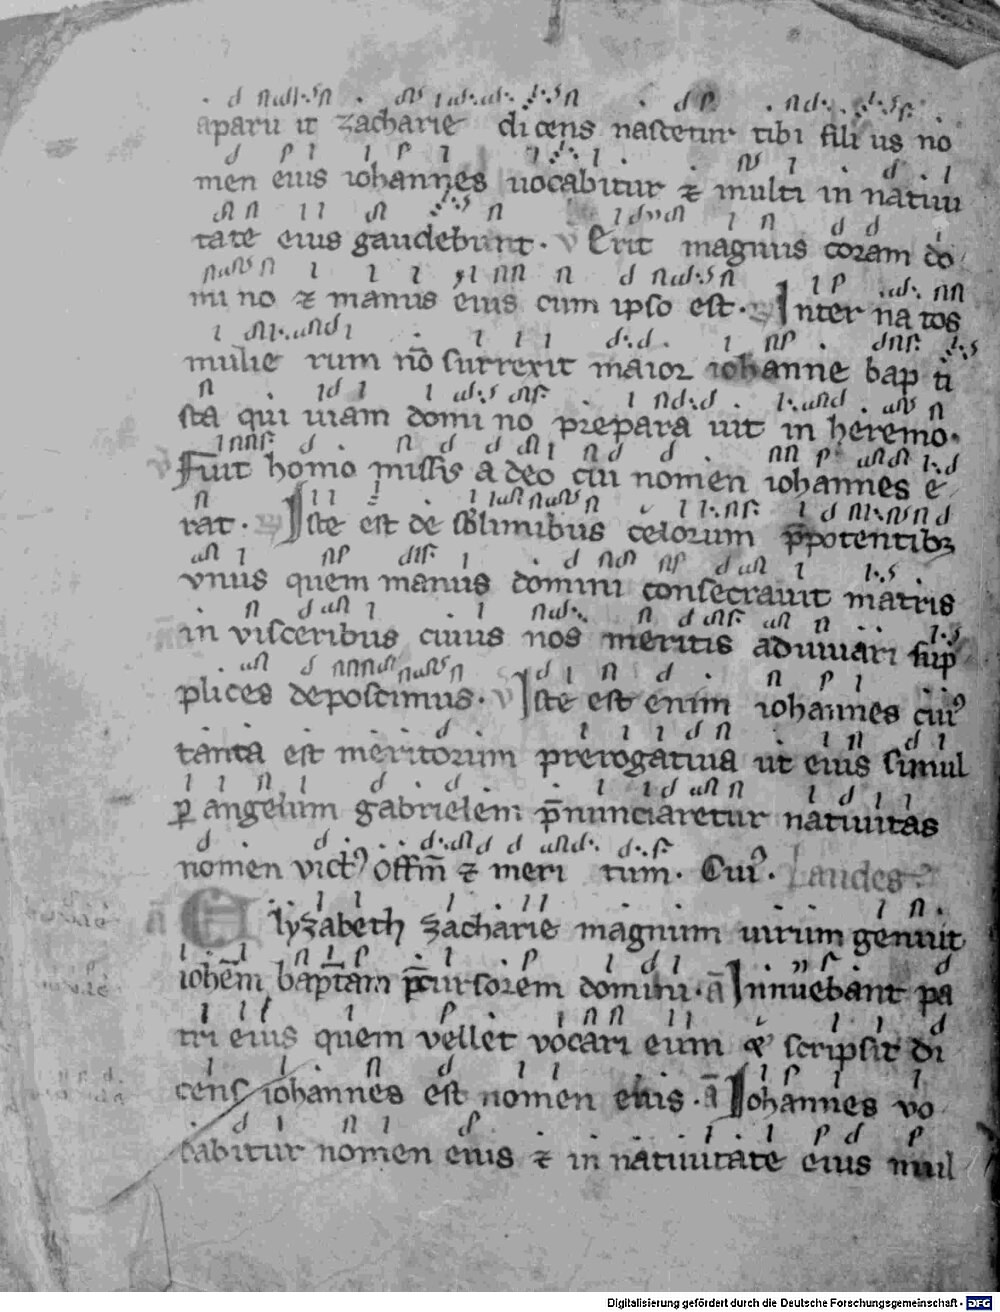 aparu it zacharie dicens nascetur tibi fili us no
men eius iohannes uocabitur ⁊ multi in natiui
tate eius gaudebunt. v Erit magnus coram do
mi no ⁊ manus eius cum ipso est. Inter na tos
mulie rum nō surrexit maior iohanne bap ti
sta qui uiam domi no prepara uit in heremo.
v Fuit homo missus a deo cui nomen iohannes e
rat. Iste est de sublimibus celorum p̄potentibꝫ
vnus quem manus domini consecrauit matris
in visceribus cuius nos meritis adiuuari sup
plices deposcimus. v Iste est enim iohannes cuiꝰ
tanta est meritorum prerogatiua ut eius simul
ꝑ angelum gabrielem p̄nunciaretur natiuitas
nomen victꝰ offm̄ ⁊ meri tum. Cuiꝰ. Laudes.
ā Elyzabeth zacharie magnum uirum genuit
iohēm bapt̄am p̄cursorem domini. ā Innuebant pa
tri eius quem vellet vocari eum ⁊ scripsit di
cens iohannes est nomen eius. ā Iohannes vo
cabitur nomen eius ⁊ in natiuitate eius mul
Digitalisierung gefördert durch die Deutsche Forschungsgemeinschaft - DFG